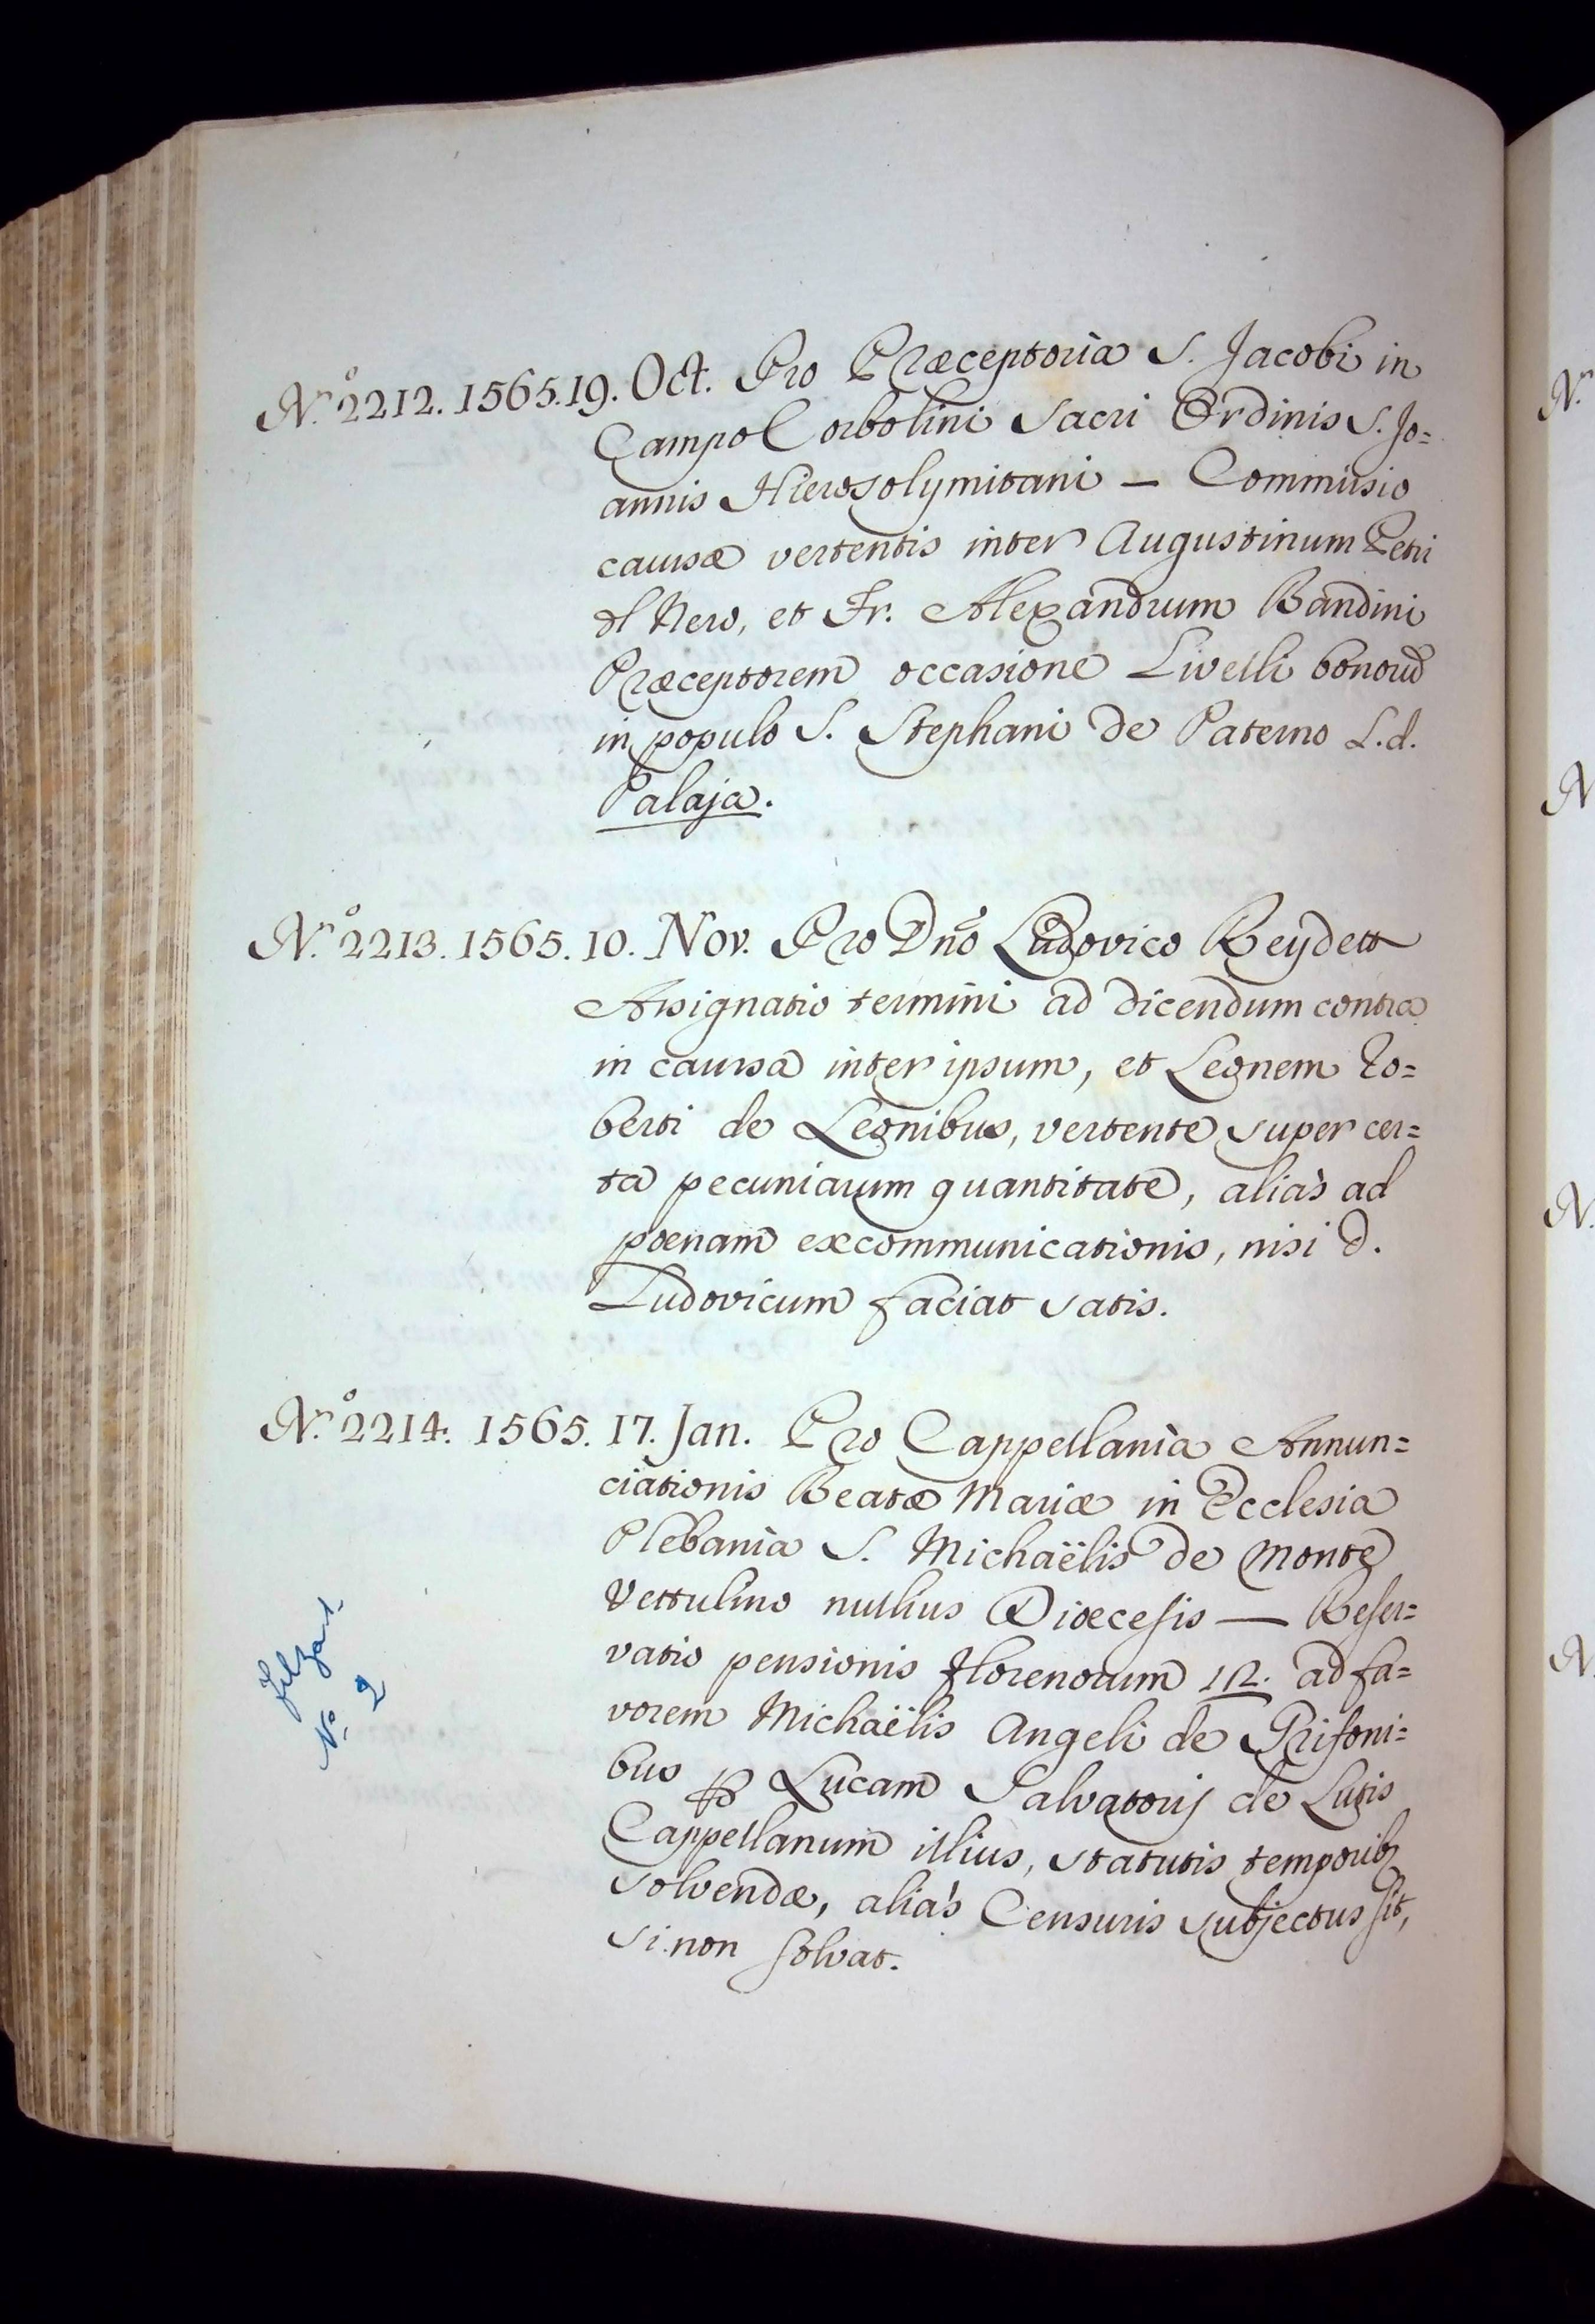 N.º 2212. 1565. 19. Oct. Pro Præceptoria S. Jacobi in
Campo Corbolini Sacri Ordinis S. Jo=
annis Hierosolymitani — Commissio
causæ vertentis inter Augustinum Petri
dl Nero, et Fr. Alexandrum Bandini
Præceptorem occasione Livelli bonorũ
in populo S. Stephani de Paterno L.d.
Palaja.
N.º 2213. 1565. 10. Nov. Pro Dnõ Ludovico Beydett
Assignatio termini ad dicendum contra
in caussa inter ipsum, et Leonem Ro=
berti de Leonibus, vertente super cer=
ta pecuniarum quantitate, aliàs ad
poenam excommunicationis, nisi d.
Ludovicum faciat satis.
N.º 2214. 1565. 17. Jan. Pro Cappellania Annun=
ciationis Beatæ Mariæ in Ecclesia
Plebania S. Michaëlis de Monte
Vettulino nullius Dioecesis — Reser=
vatio pensionis florenorum 12. ad fa=
vorem Michaëlis Angeli de Grifoni=
bus ꝑ Lucam Salvatorij de Lutis
Cappellanum illius, statutis temporibꝫ
solvendæ, aliàs Censuris subjectus sit,
si non solvat.
Filza 1.
Nº 2
N.
N
N.
N.